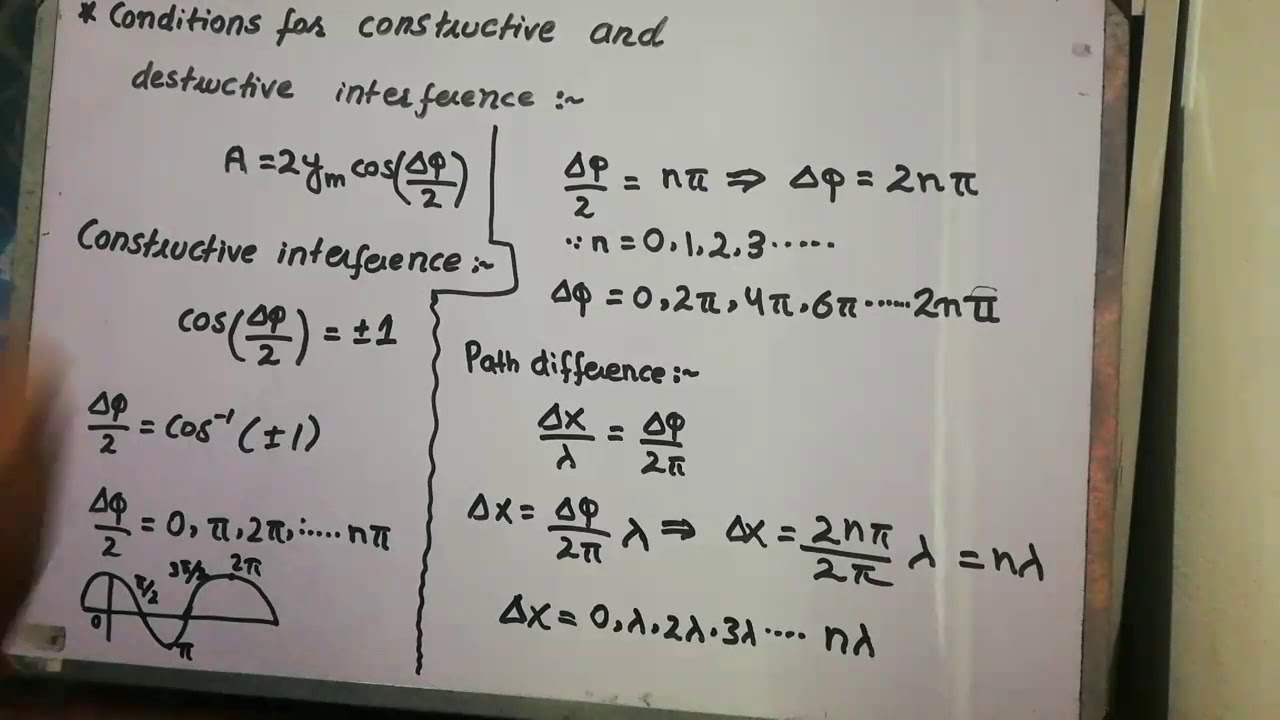 * Conditions for constructive and
destructive interference :~
A = 2yₘ cos(Δφ/2)
Constructive interference :~
cos(Δφ/2) = ±1
Δφ/2 = cos⁻¹ (±1)
Δφ/2 = 0, π, 2π, :.... nπ
0 π/2 π 3π/2 2π
Δφ/2 = nπ ⇒ Δφ = 2nπ
∵ n = 0, 1, 2, 3 ......
Δφ = 0, 2π, 4π, 6π ...... 2nπ
Path difference :~
Δx/λ = Δφ/2π
Δx = Δφ/2π λ ⇒ Δx = 2nπ/2π λ = nλ
Δx = 0, λ, 2λ, 3λ .... nλ